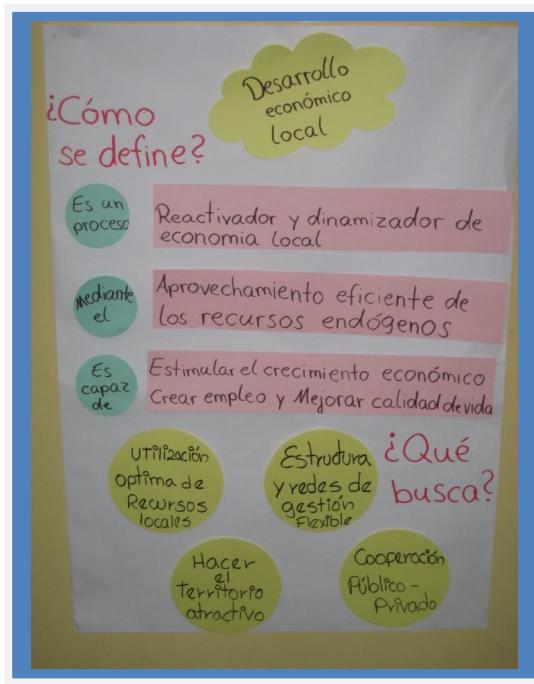 Desarrollo
económico
local
¿Cómo
se define?
Es un
proceso
Reactivador y dinamizador de
economia local
Mediante
el
Aprovechamiento eficiente de
los recursos endógenos
Es
capaz
de
Estimular el crecimiento económico
Crear empleo y Mejorar calidad de vida
¿Qué
busca?
Utilización
optima de
Recursos
locales
Estructura
y redes de
gestión
Flexible
Hacer
el
Territorio
atractivo
Cooperación
Público -
Privado